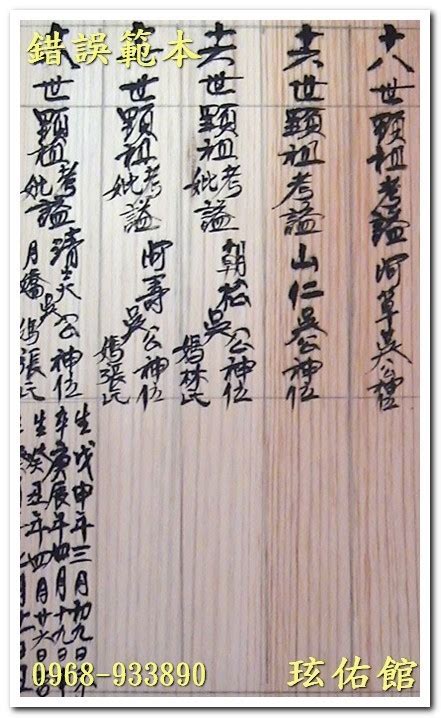 錯誤範本
十八世顯祖考謚阿草吳公神位
十六世顯祖考謚山仁吳公神位
十六世顯祖考妣謚朝松吳公神位媽林氏
世顯祖考妣謚阿壽吳公神位媽張氏
八世顯祖考妣謚清炎公神位月嬌媽張氏
生戊申年三月初九日
卒庚辰年四月十九日
生癸丑年四月廿六日
0968-933890
玹佑館